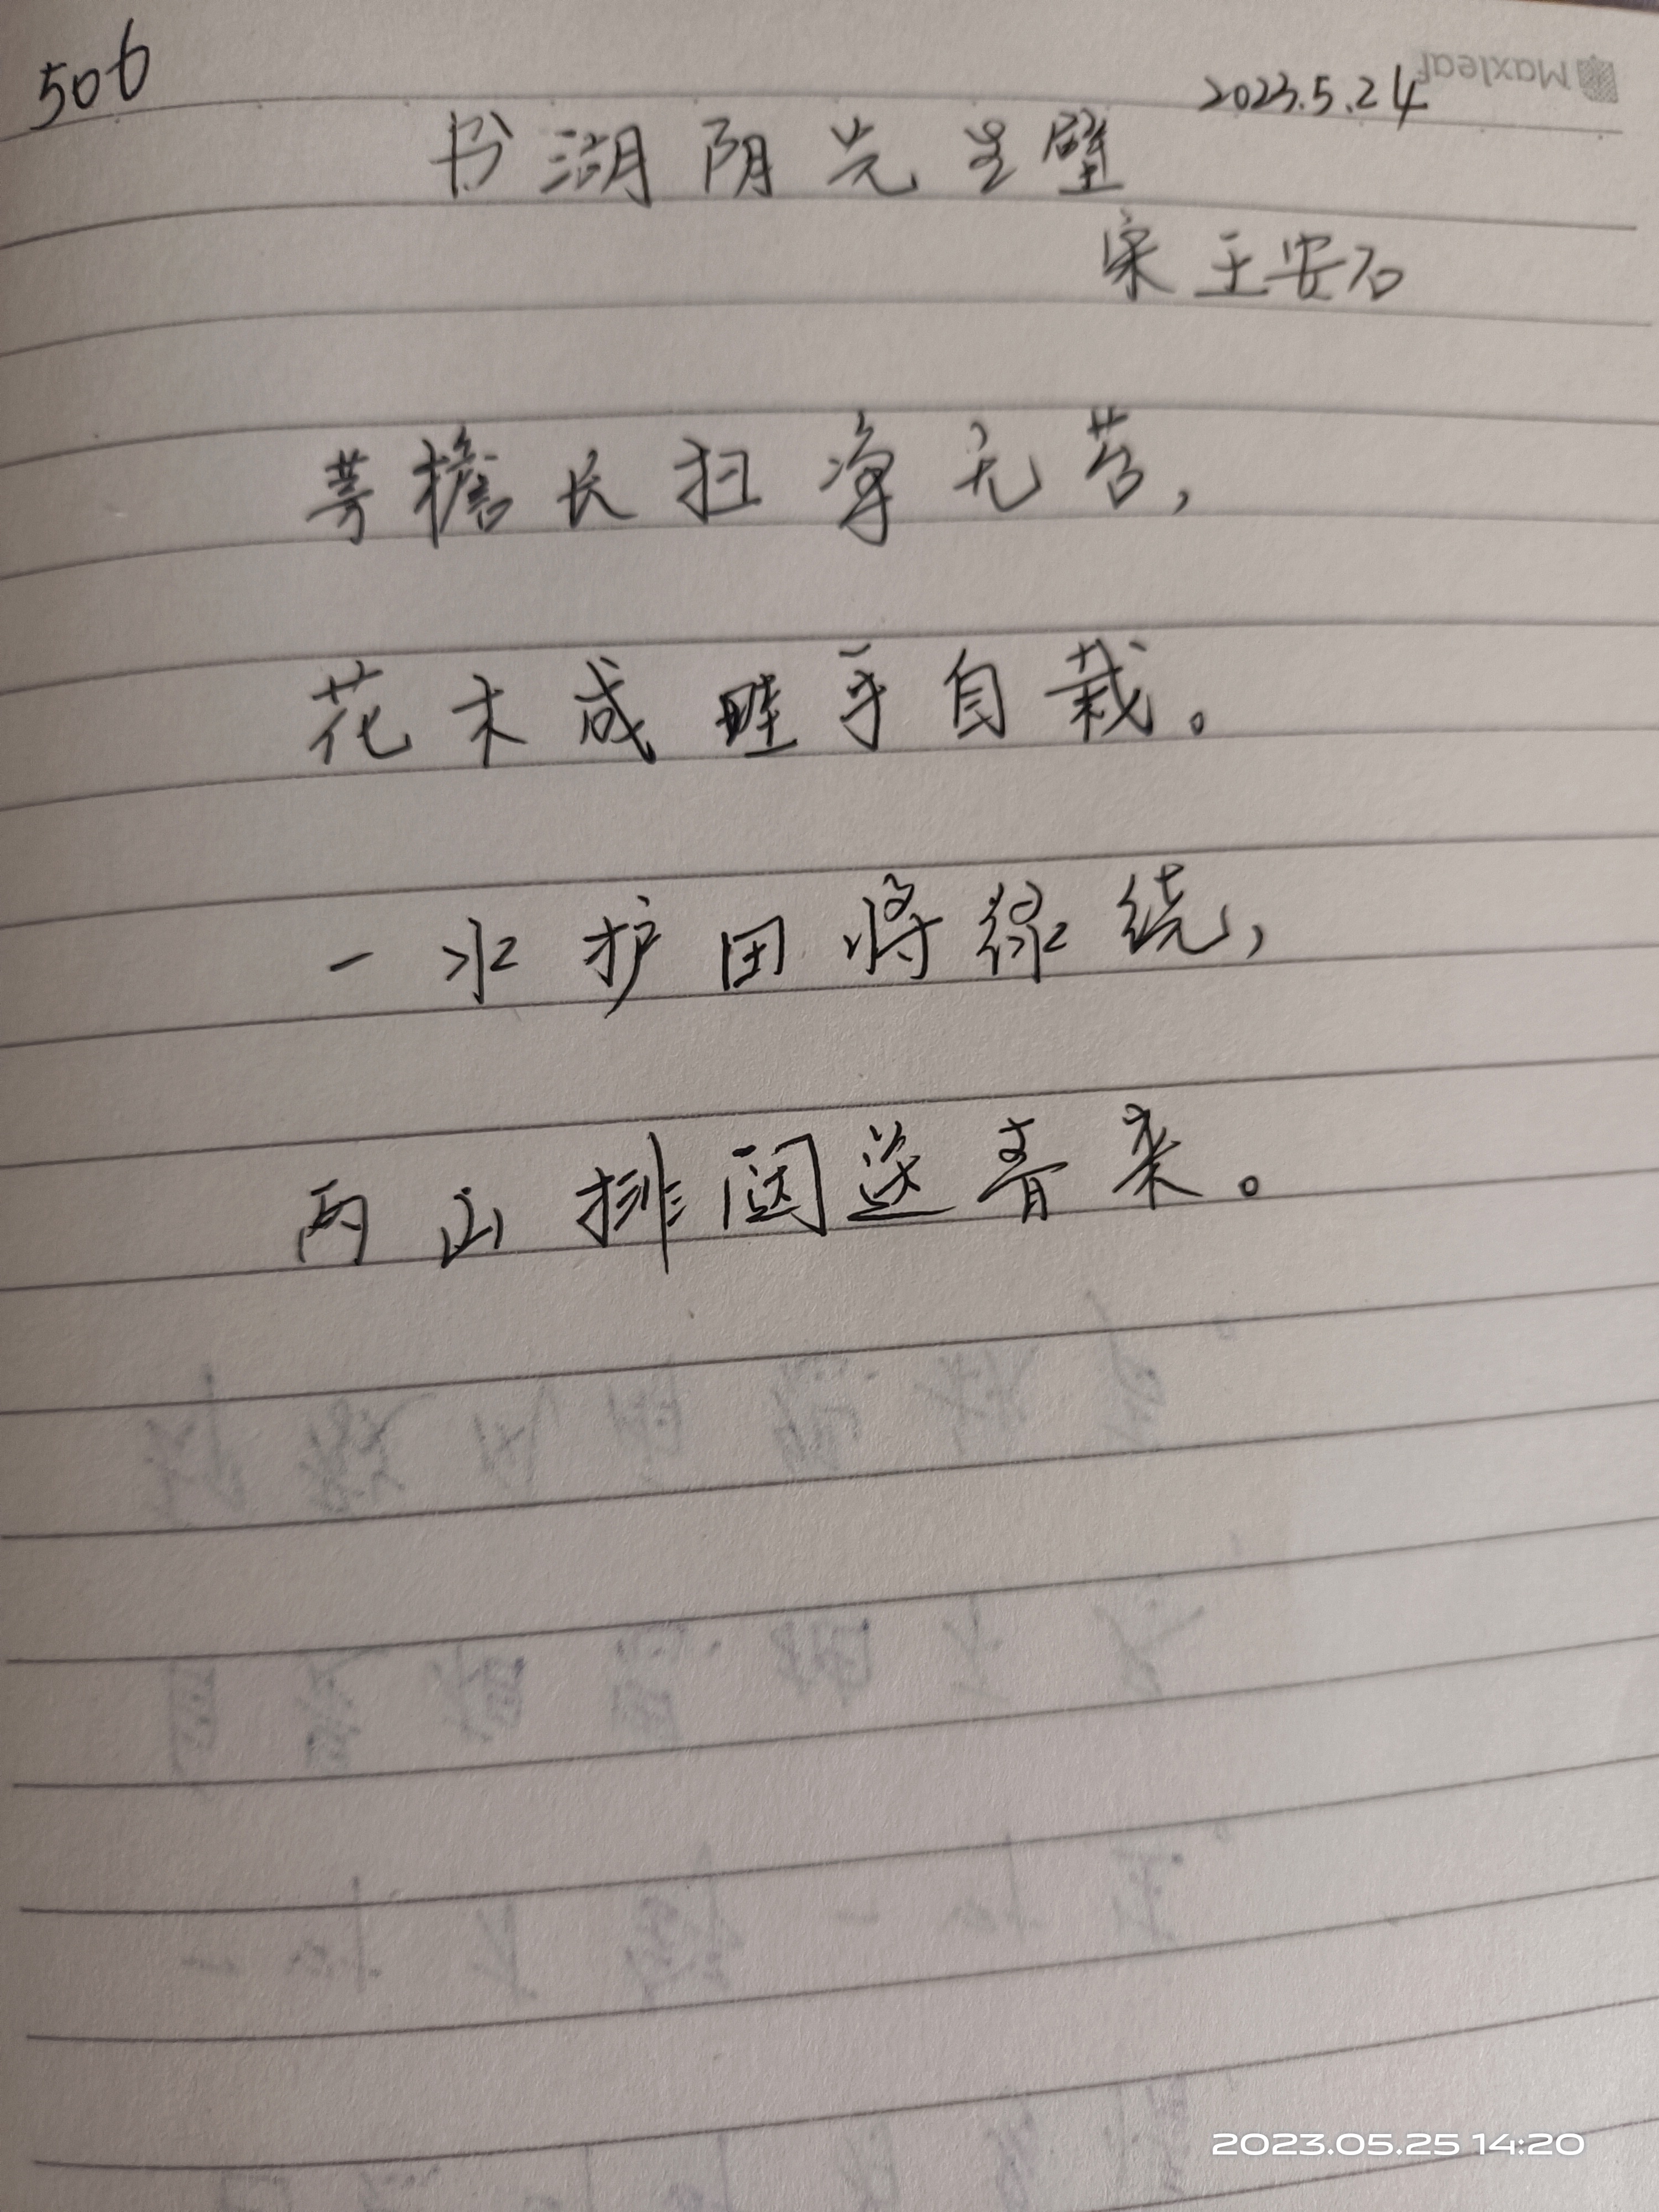 506
2023.5.24
Maxleaf
书湖阴先生壁
宋 王安石
茅檐长扫净无苔，
花木成畦手自栽。
一水护田将绿绕，
两山排闼送青来。
2023.05.25 14:20